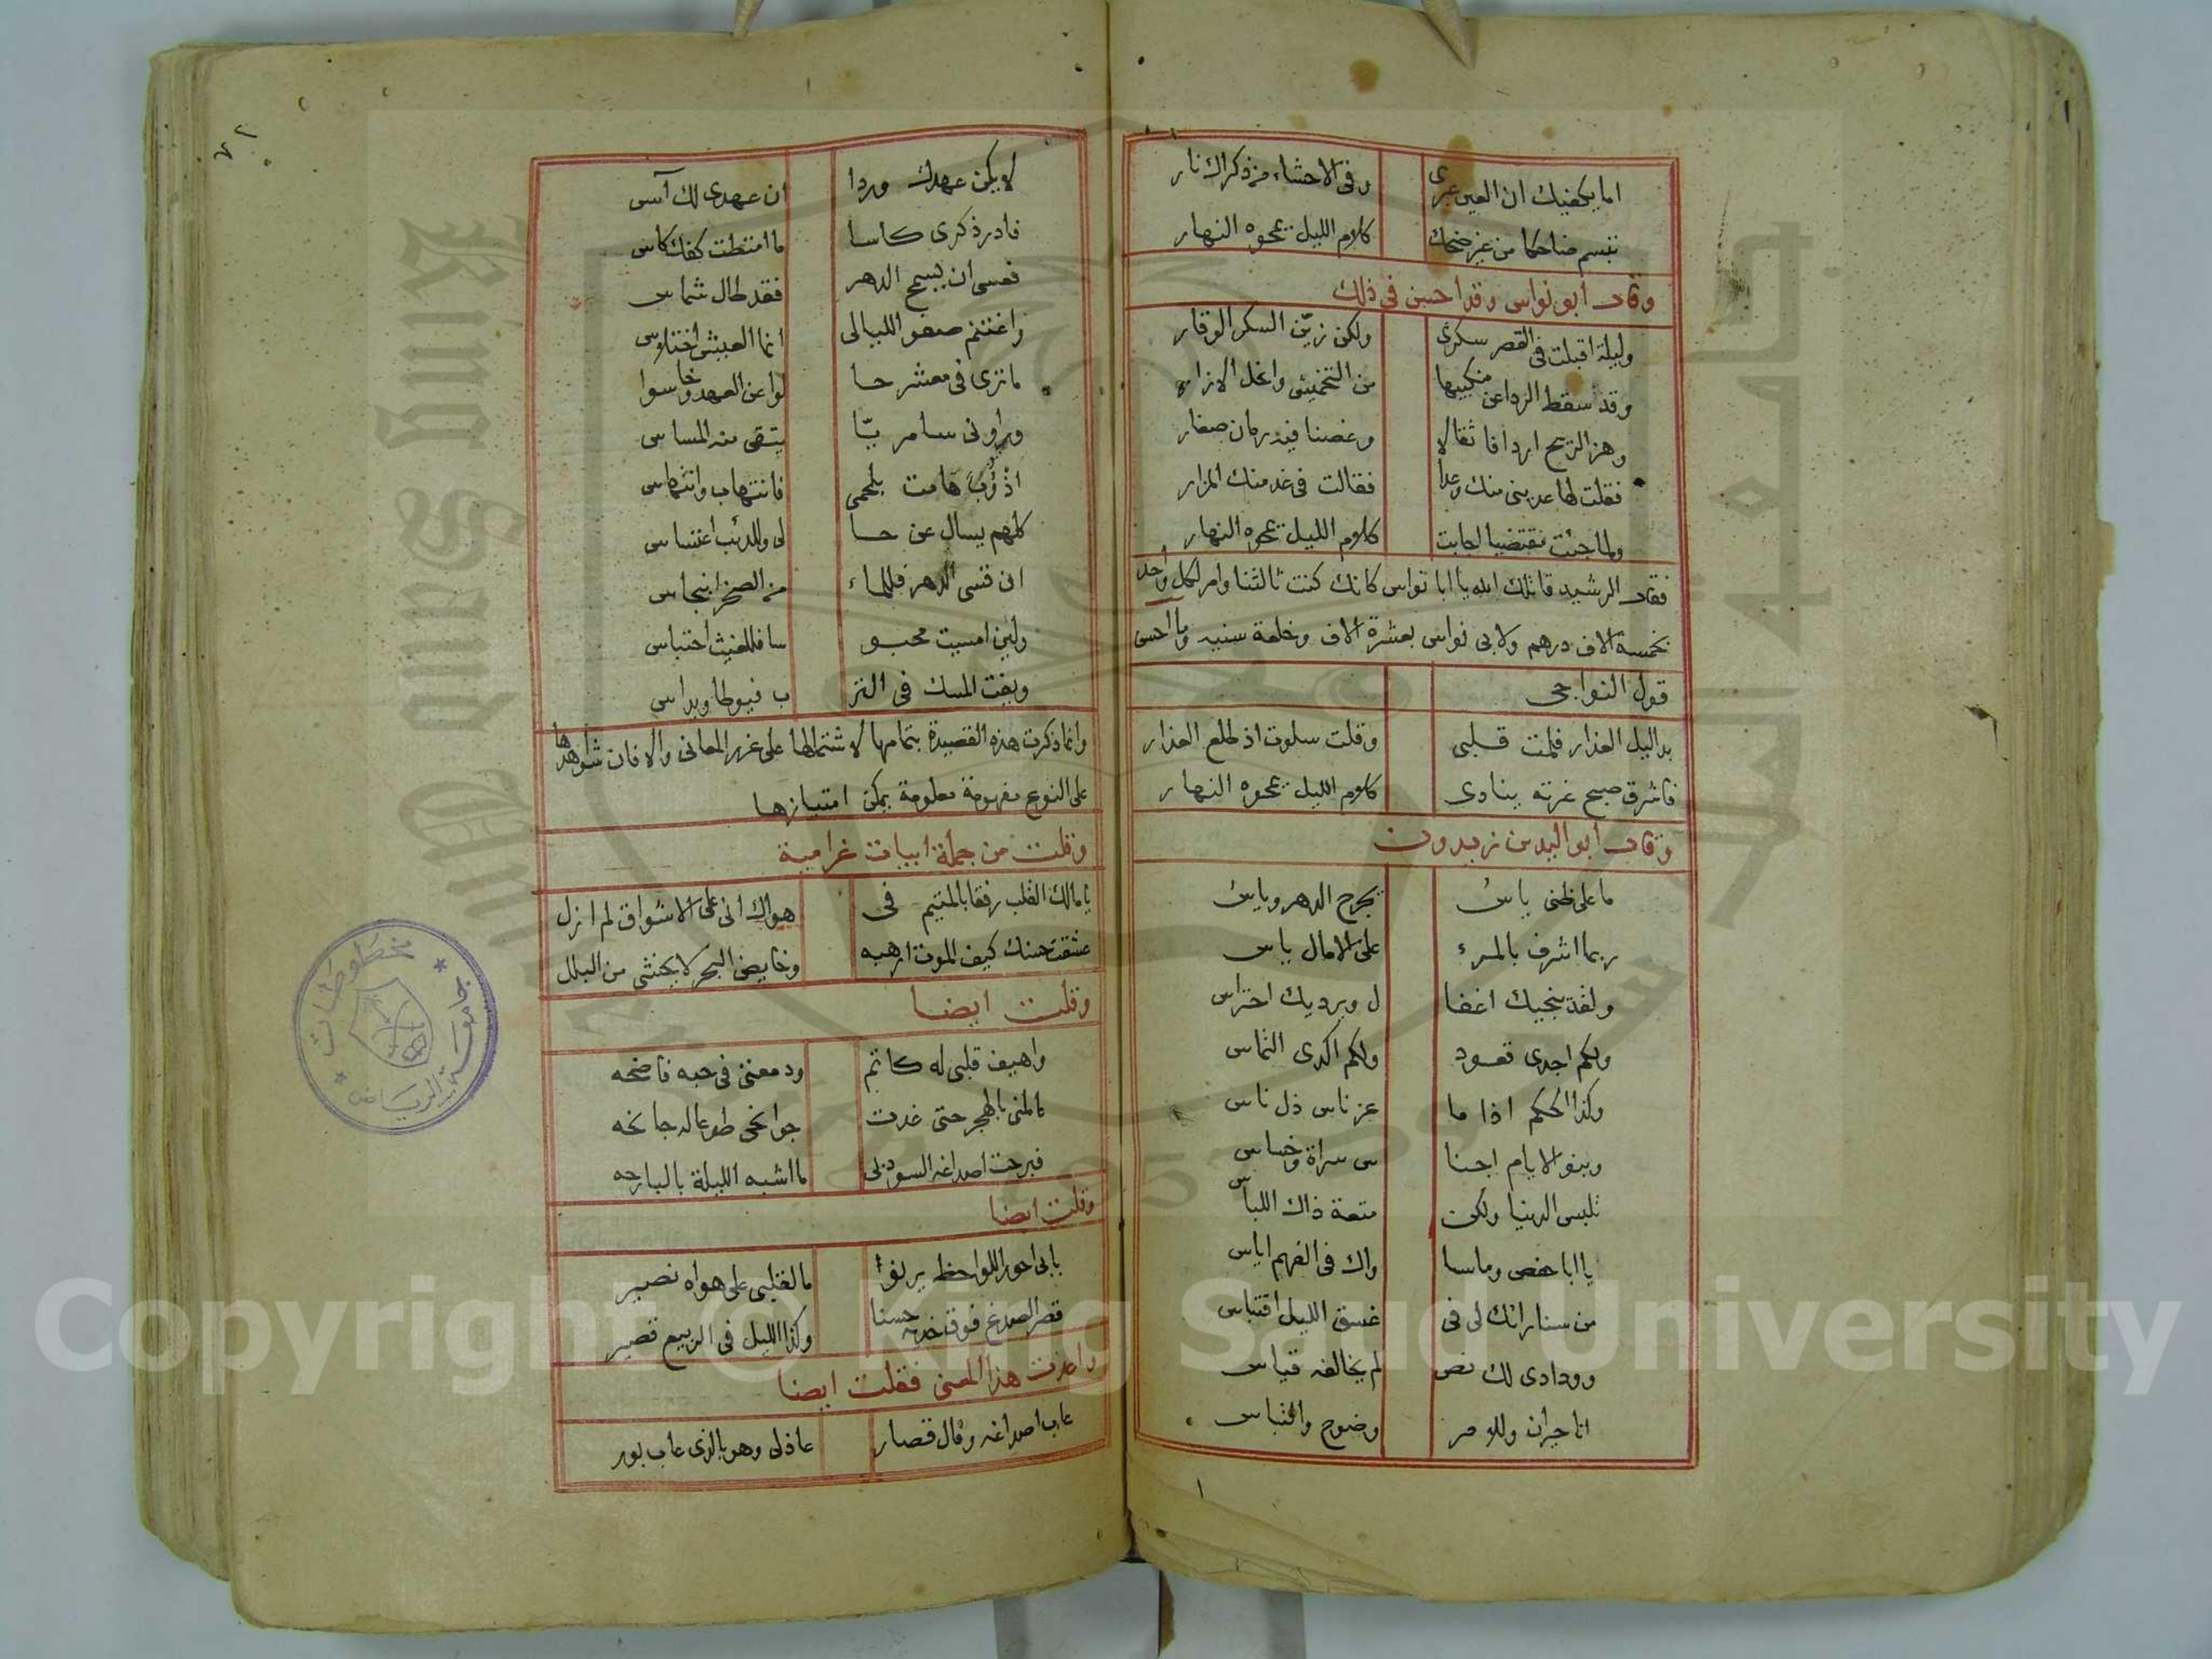 اما يكفيك ان العين عبرى وفى الاحشاء من ذكراك نار
تبسم ضاحكا من غير ضحك كلام الليل يمحوه النهار
وقال ابو نواس وقد احسن فى ذلك
وليلة اقبلت فى القصر سكرى ولكن زيّن السكر الوقار
وقد سقط الردا عن منكبيها من التخميش وانحل الازار
وهز الريح اردافا ثقالا وغصنا فيه رمان صغار
فقلت لها عدينى منك وعدا فقالت فى غد منك المزار
ولما جئت مقتضيا اجابت كلام الليل يمحوه النهار
فقال الرشيد قاتلك الله يا ابا نواس كانك كنت ثالثنا وامر لكل واحد
بخمسة الاف درهم ولابى نواس بعشرة الاف وخلعة سنيه وما احسن
قول النواجى
بدا ليل العذار فلمت قلبى وقلت سلوت اذ طلع العذار
فاشرق صبح غرته ينادى كلام الليل يمحوه النهار
وقال ابو اليد بن زيدون
ما على ظنى باس يجرح الدهر وياس
ربما اشرف بالمرء على الامال ياس
ولقد ينجيك اغفا ل ويرديك احتراس
ولكم اجدى قعود ولكم اكدى التماس
وكذا الحكم اذا ما عز ناس ذل ناس
وبنو الايام اجنا س سراة وخساس
نلبس الدنيا ولكن متعة ذاك اللباس
يا ابا حفص وما سا واك فى الفهم اياس
من سنا رائك لى فى غسق الليل اقتباس
وودادى لك نص لم يخالفه قياس
انا حيران وللامر وضوح والتباس
لا يكن عهدك وردا ان عهدى لك آسى
فادر ذكرى كاسا ما امتطت كفك كاس
فعسى ان يسمح الدهر فقد طال شماس
واغتنم صفو الليالى انما العيش اختلاس
ما ترى فى معشر حا لوا عن العهد وخاسوا
وراونى سامريّا يتقى منه المساس
اذْؤُبٌ هامت بلحمى فانتهاب وانتهاس
كلهم يسال عن حا لى وللذئب اعتساس
ان قسى الدهر فللماء من الصخر انبجاس
ولين امسيت محبو سا فللغيث احتباس
ويفت المسك فى التر ب فيوطا ويداس
وانما ذكرت هذه القصيدة بتمامها لاشتمالها على غرر المعانى والا فان شواهدها
على النوع مفهومة معلومة يمكن امتيازها
وقلت من جملة ابيات غرامية
يا مالك القلب رفقا بالمتيم فى هواك انى على الاشواق لم ازل
عشقت حسنك كيف الموت ارهبه وخايض البحر لا يخشى من البلل
وقلت ايضا
واهيف قلبى له كاتم ودمعتى فى حبه فاضحه
المنى بالهجر حتى غدت جوانحى طوعا له جانحه
فبرحت اصداغه السود بى ما اشبه الليلة بالبارحه
وقلت ايضا
بابى احور اللواحظ يرنو ما لقلبى على هواه نصير
قصر الصدغ فوق خديه حسنا وكذا الليل فى الربيع قصير
واعدت هذا المعنى فقلت ايضا
عاب اصداغه وقال قصار عاذلى وهو بالذى عاب بور
مخطوطات
جامعة الرياض
King Saud University
Copyright © King Saud University